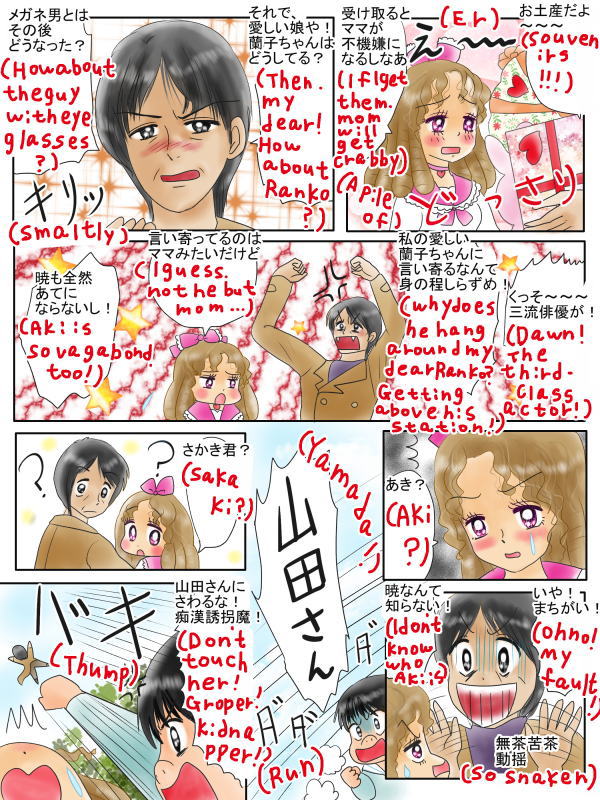 お土産だよ
～～～
(Souven
irs
!!!)
え～
(Er)
受け取ると
ママが
不機嫌に
なるしなあ
(If I get
them.
mom
will
get
crabby)
どっさり
(A pile
of)
それで、
愛しい娘や！
蘭子ちゃんは
どうしてる？
(Then.
my
dear!
How
about
Ranko
?)
メガネ男とは
その後
どうなった？
(How about
the guy
with eye
glasses
?)
キリッ
(smaltly)
くっそ～～～
三流俳優が！
(Dawn!
The
third-
class
actor!)
私の愛しい
蘭子ちゃんに
言い寄るなんて
身の程しらずめ！
(why does
he hang
around my
dear Ranko?
Getting
above his
station!)
言い寄ってるのは
ママみたいだけど
(I guess.
not he but
mom...)
暁も全然
あてに
ならないし！
(Aki is
so vagabond
too!)
あき？
(AKi
?)
山田さん
(Yamada!)
さかき君？
(saka
ki?)
?
?
いや！
まちがい！
(Oh no!
my
fault!)
暁なんて
知らない！
(I don't
know
who
Aki is)
無茶苦茶
動揺
(So snaken)
ダダダダ
(Run)
山田さんに
さわるな！
痴漢誘拐魔！
(Don't
touch
her!
Groper,
kidna
pper!)
バキ
(Thump)